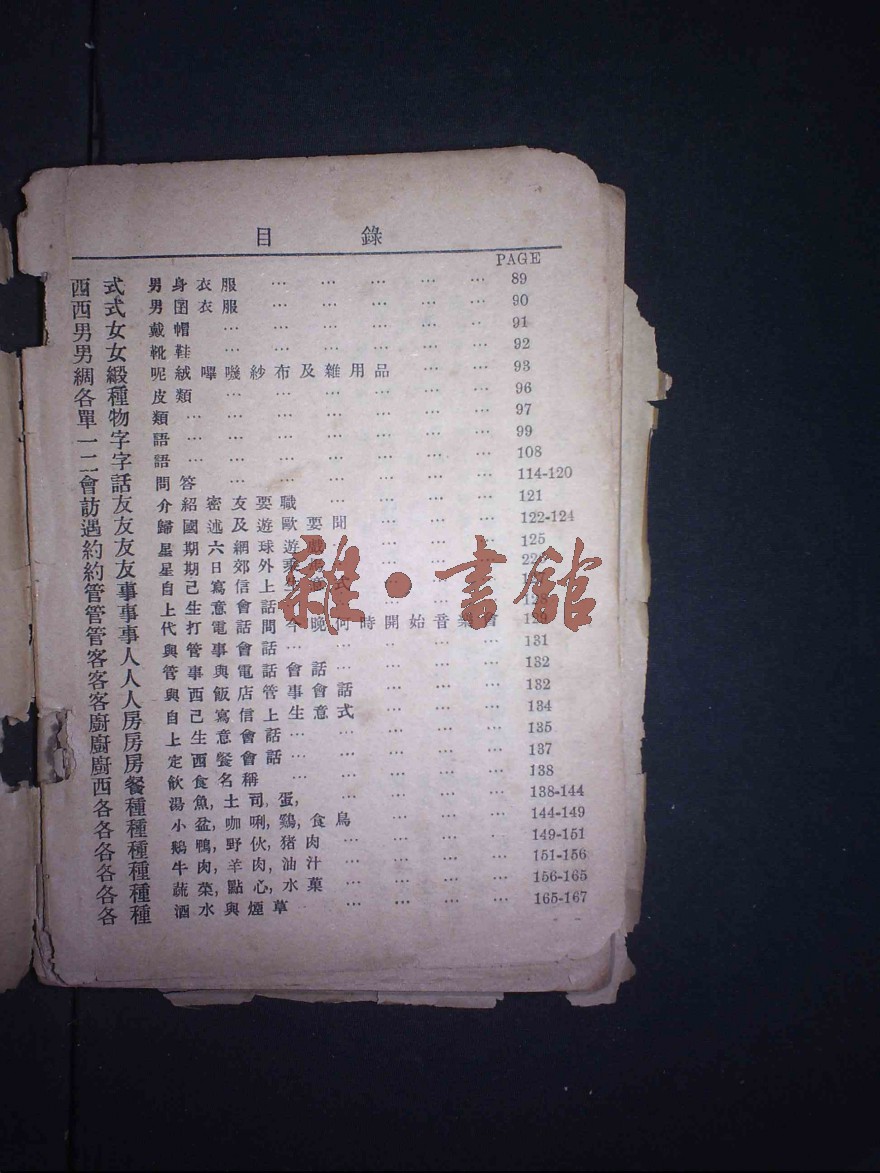 目錄
PAGE
西式男身衣服 … … … … … 89
西式男囝衣服 … … … … … 90
男女戴帽 … … … … … 91
男女靴鞋 … … … … … 92
綢緞呢絨嗶嘰紗布及雜用品 … … 93
各種皮類 … … … … … 96
單物類 … … … … … … 97
一字語 … … … … … … 99
二字語 … … … … … … 108
會話問答 … … … … … 114-120
訪友介紹密友要職 … … … … 121
遇友歸國述及遊歐要聞 … … … 122-124
約友星期六網球遊戲 … … … 125
約友星期日郊外乘
管事自己寫信上生意式
管事上生意會話 … … … 128
管事代打電話問今晚何時開始音樂會 129
客人與管事會話 … … … … 131
客人管事與電話會話 … … … 132
客人與西飯店管事會話 … … … 132
廚房自己寫信上生意式 … … … 134
廚房上生意會話 … … … … 135
廚房定西餐會話 … … … … 137
西餐飲食名稱 … … … … … 138
各種湯魚,土司,蛋, … … … 138-144
各種小盆,咖唎,鷄,食鳥 … … … 144-149
各種鵝鴨,野伙,猪肉 … … … … 149-151
各種牛肉,羊肉,油汁 … … … … 151-156
各種蔬菜,點心,水菓 … … … … 156-165
各種酒水與煙草 … … … … 165-167
雜·書館